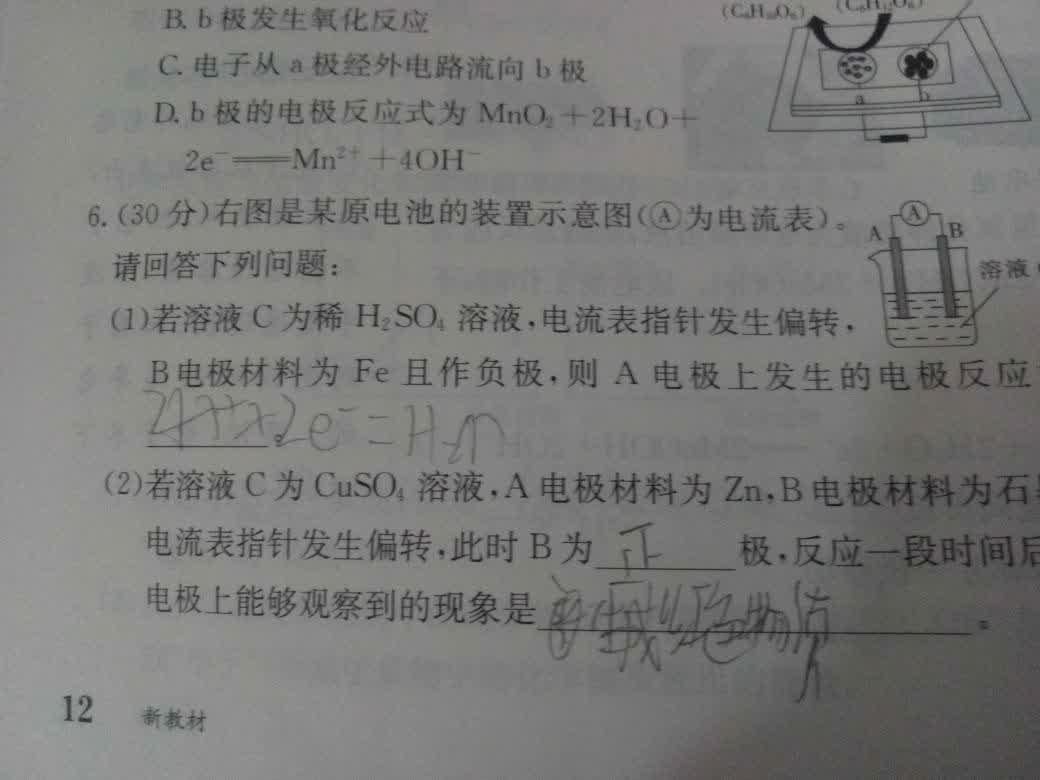 B. b极发生氧化反应
C. 电子从a极经外电路流向b极
D. b极的电极反应式为MnO₂+2H₂O+
2e⁻══Mn²⁺+4OH⁻
(C₆H₁₀O₆) (C₆H₁₂O₆)
a b
6. (30分)右图是某原电池的装置示意图(Ⓐ为电流表)。
请回答下列问题:
A Ⓐ B
溶液
(1)若溶液C为稀H₂SO₄溶液,电流表指针发生偏转,
B电极材料为Fe且作负极,则A电极上发生的电极反应
2H⁺+2e⁻=H₂↑
(2)若溶液C为CuSO₄溶液,A电极材料为Zn,B电极材料为石
电流表指针发生偏转,此时B为 正 极,反应一段时间后
电极上能够观察到的现象是 生成红色物质 。
12 新教材